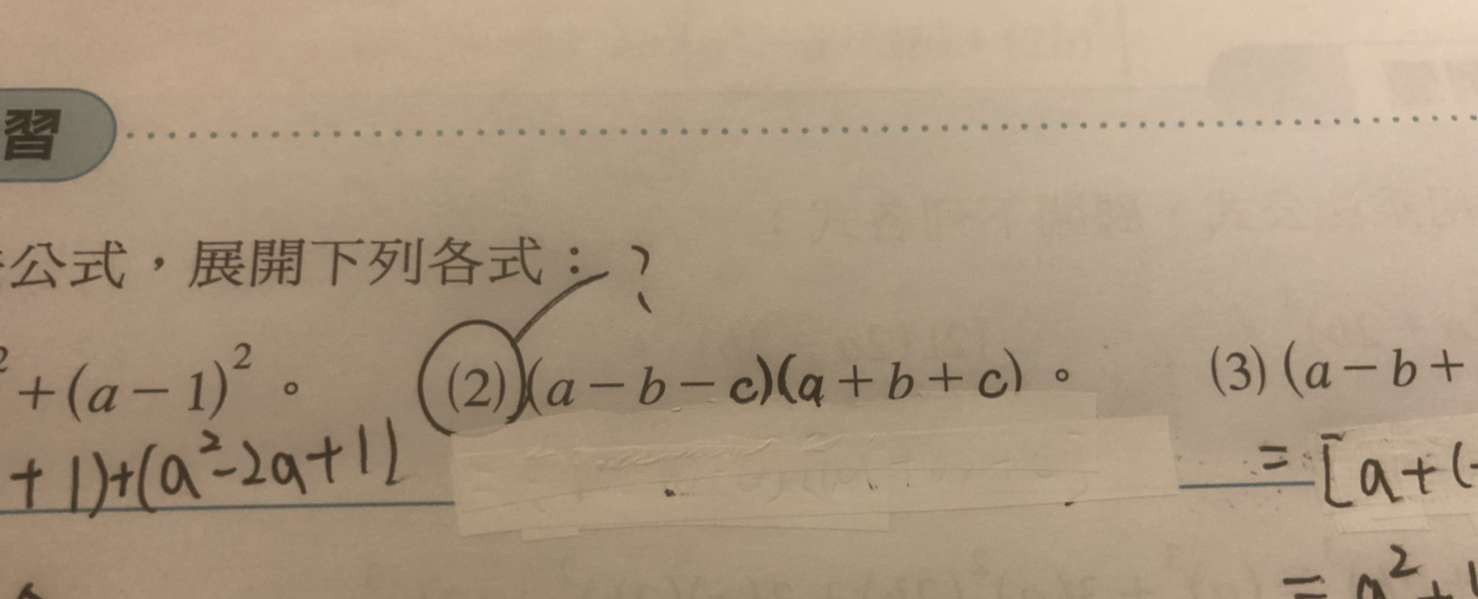 習
公式，展開下列各式： ?
² + (a − 1)² 。 (2) (a − b − c)(a + b + c) 。 (3) (a − b +
+ 1) + (a² − 2a + 1) = [a + (-
= a² +